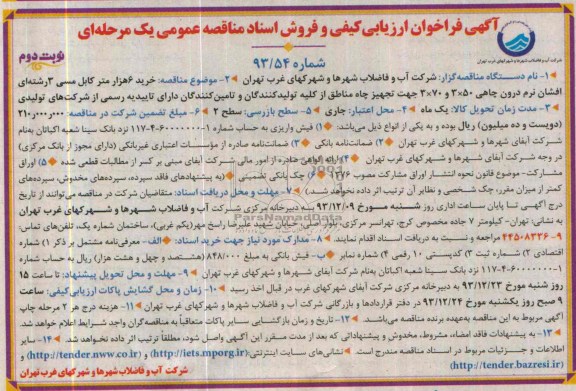 آگهی فراخوان ارزیابی کیفی و فروش اسناد مناقصه عمومی یک مرحله‌ای
شرکت آب و فاضلاب شهرها و شهرکهای غرب تهران
شماره ۹۳/۵۴
نوبت دوم
۱- نام دستگاه مناقصه‌گزار: شرکت آب و فاضلاب شهرها و شهرکهای غرب تهران ۲- موضوع مناقصه: خرید ۶هزار متر کابل مسی ۳رشته‌ای
افشان نرم درون چاهی ۵۰×۳ و ۷۰×۳ جهت تجهیز چاه مناطق از کلیه تولیدکنندگان و تامین‌کنندگان دارای تاییدیه رسمی از شرکت‌های تولیدی
۳- مدت زمان تحویل کالا: یک ماه ۴- محل اعتبار: جاری ۵- سطح بازرسی: سطح ۲ ۶- مبلغ تضمین شرکت در مناقصه: ۲۱۰,۰۰۰,۰۰۰
(دویست و ده میلیون) ریال بوده و به یکی از انواع ذیل می‌باشد: ۱) فیش واریزی به حساب شماره ۱-۶۰۰۰۰۰۰-۴-۱۱۷ نزد بانک سینا شعبه اکباتان به‌نام
شرکت آبفای شهرها و شهرکهای غرب تهران ۲) ضمانت‌نامه بانکی ۳) ضمانت‌نامه صادره از مؤسسات اعتباری غیربانکی (دارای مجوز از بانک مرکزی)
در وجه شرکت آبفای شهرها و شهرکهای غرب تهران ۴) ارائه گواهی صادره از امور مالی شرکت آبفای مبنی بر کسر از مطالبات قطعی شده ۵) اوراق
مشارکت- موضوع قانون نحوه انتشار اوراق مشارکت مصوب ۱۳۷۶ ۶) چک بانکی تضمینی (به پیشنهادهای فاقد سپرده، سپرده‌های مخدوش، سپرده‌های
کمتر از میزان مقرر، چک شخصی و نظایر آن ترتیب اثر داده نخواهد شد.) ۷- مهلت و محل دریافت اسناد: متقاضیان شرکت در مناقصه می‌توانند از تاریخ
درج آگهی تا پایان ساعت اداری روز شنبه مورخ ۹۳/۱۲/۰۹ به دبیرخانه مرکزی شرکت آب و فاضلاب شهرها و شهرکهای غرب تهران
به نشانی: تهران- کیلومتر ۷ جاده مخصوص کرج، تهرانسر مرکزی، بلوار اصلی، خیابان شهید علیرضا راسخ مهر(یکم غربی)، ساختمان شماره یک، تلفن‌های تماس:
۹-۴۴۵۰۸۳۳۶ مراجعه و نسبت به دریافت اسناد اقدام نمایند. ۸- مدارک مورد نیاز جهت خرید اسناد: الف- معرفی‌نامه مشتمل بر ذکر ۱) شماره
اقتصادی ۲) شماره ثبت ۳) کدپستی ۱۰ رقمی ۴) شماره نمابر ب- فیش بانکی به مبلغ ۸۴۸/۰۰۰ (هشتصد و چهل و هشت هزار) ریال به حساب شماره
۱-۶۰۰۰۰۰۰-۴-۱۱۷ نزد بانک سینا شعبه اکباتان به‌نام شرکت آبفای شهرها و شهرکهای غرب تهران ۹- مهلت و محل تحویل پیشنهاد: تا ساعت ۱۵
روز شنبه مورخ ۹۳/۱۲/۲۳ به دبیرخانه مرکزی شرکت آبفای شهرها و شهرکهای غرب در قبال اخذ رسید ۱۰- زمان و محل گشایش پاکات ارزیابی‌کیفی: ساعت
۹ صبح روز یکشنبه مورخ ۹۳/۱۲/۲۴ در دفتر قراردادها و بازرگانی شرکت آب و فاضلاب شهرها و شهرکهای غرب تهران ۱۱- هزینه درج هر ۲ مرحله چاپ
آگهی مربوط به این مناقصه به‌عهده برنده مناقصه می‌باشد. ۱۲- تاریخ و زمان بازگشایی سایر پاکات متعاقباً به مناقصه‌گران واجد شرایط اعلام خواهد شد.
۱۳- به پیشنهادات فاقد امضاء، مشروط، مخدوش و پیشنهاداتی که بعد از مدت مقرر این آگهی واصل شود، مطلقاً ترتیب اثر داده نخواهد شد. ۱۴- سایر
اطلاعات و جزئیات مربوط در اسناد مناقصه مندرج است. نشانی‌های سایت اینترنتی: (http://iets.mporg.ir) و (http://tender.nww.co.ir) و
(http://tender.bazresi.ir)
شرکت آب و فاضلاب شهرها و شهرکهای غرب تهران